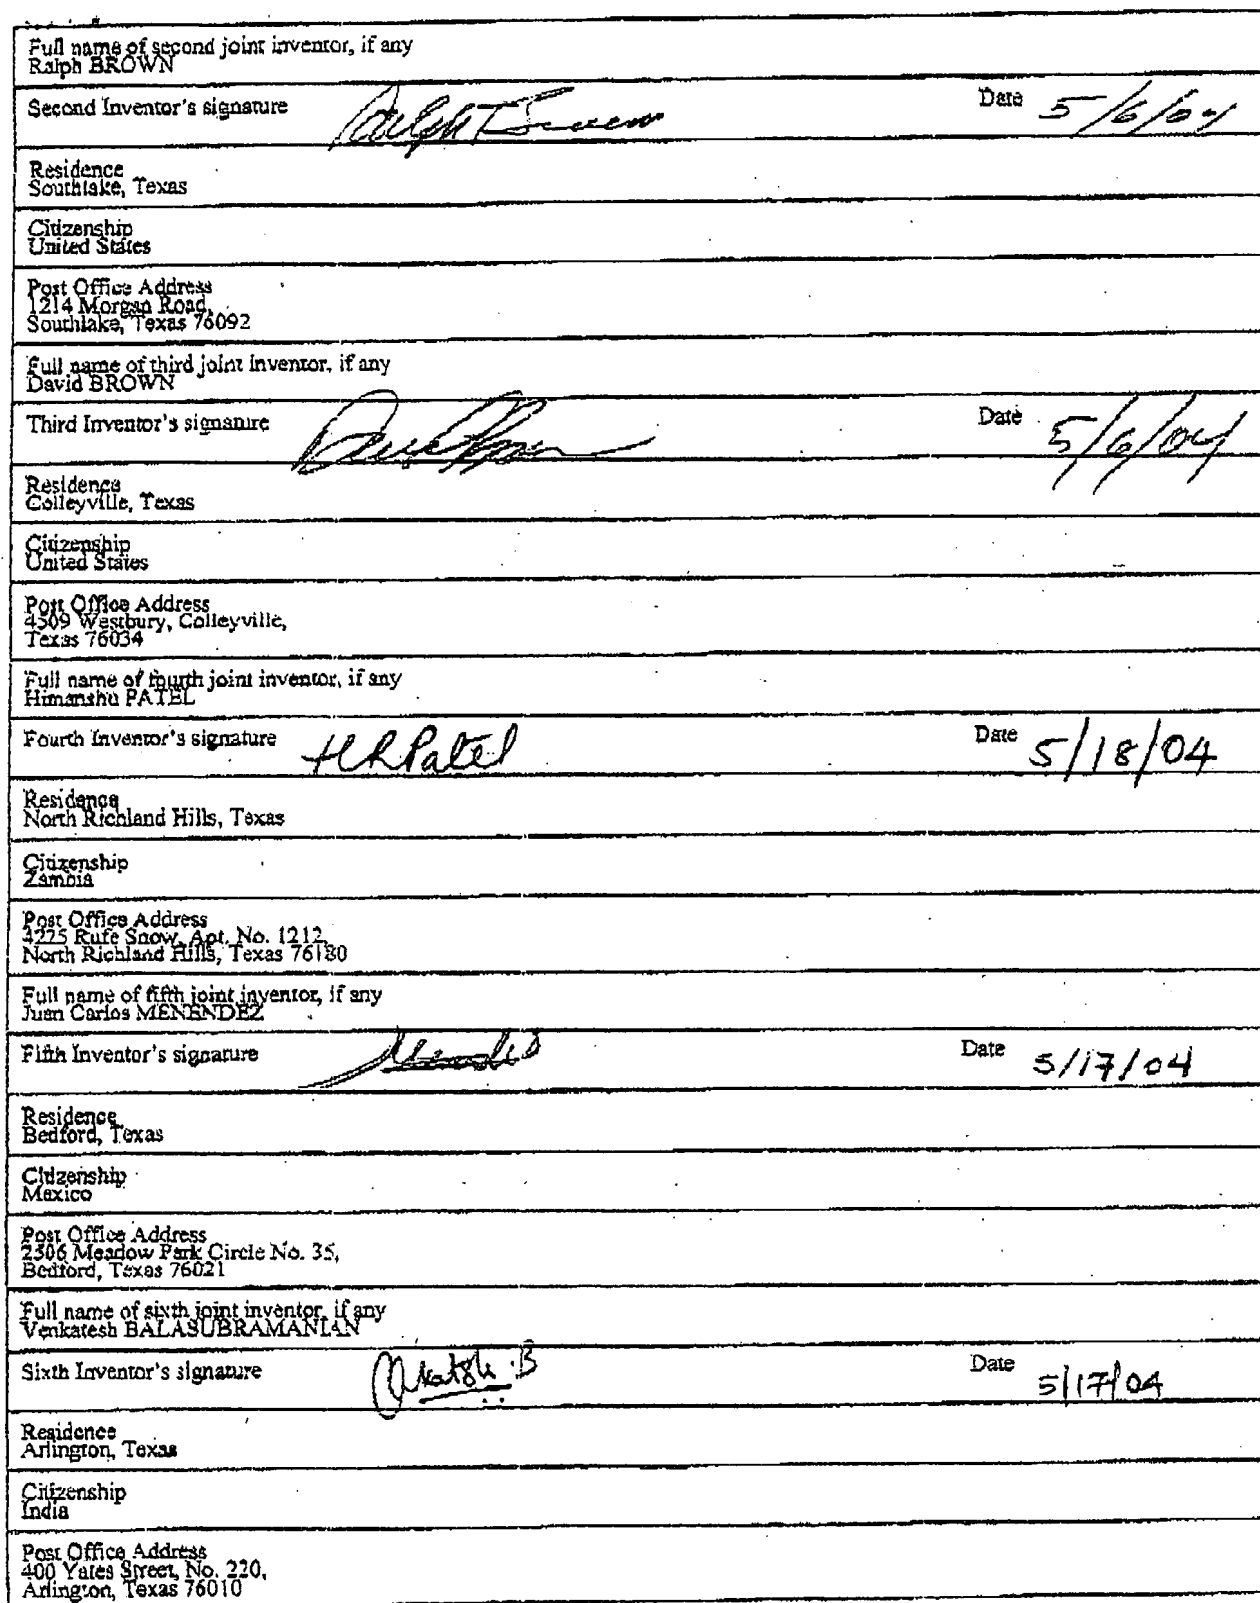 Full name of second joint inventor, if any
Ralph BROWN
Second Inventor's signature Ralph Brown Date 5/6/04
Residence
Southlake, Texas
Citizenship
United States
Post Office Address
1214 Morgan Road,
Southlake, Texas 76092
Full name of third joint inventor, if any
David BROWN
Third Inventor's signature Date 5/6/04
Residence
Colleyville, Texas
Citizenship
United States
Post Office Address
4509 Westbury, Colleyville,
Texas 76034
Full name of fourth joint inventor, if any
Himanshu PATEL
Fourth Inventor's signature HRPatel Date 5/18/04
Residence
North Richland Hills, Texas
Citizenship
Zambia
Post Office Address
4275 Rufe Snow, Apt. No. 1212,
North Richland Hills, Texas 76180
Full name of fifth joint inventor, if any
Juan Carlos MENENDEZ
Fifth Inventor's signature Date 5/17/04
Residence
Bedford, Texas
Citizenship
Mexico
Post Office Address
2506 Meadow Park Circle No. 35,
Bedford, Texas 76021
Full name of sixth joint inventor, if any
Venkatesh BALASUBRAMANIAN
Sixth Inventor's signature Date 5/17/04
Residence
Arlington, Texas
Citizenship
India
Post Office Address
400 Yates Street, No. 220,
Arlington, Texas 76010